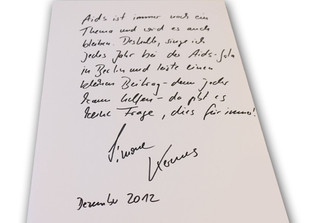 Aids ist immer noch ein
Thema und wird es auch
bleiben. Deshalb, singe ich
jedes Jahr bei der Aids-Gala
in Berlin und leiste einen
kleinen Beitrag - denn jeder
kann helfen - da gibt es
keine Frage, dies für immer!
Simone
Kermes
Dezember 2012